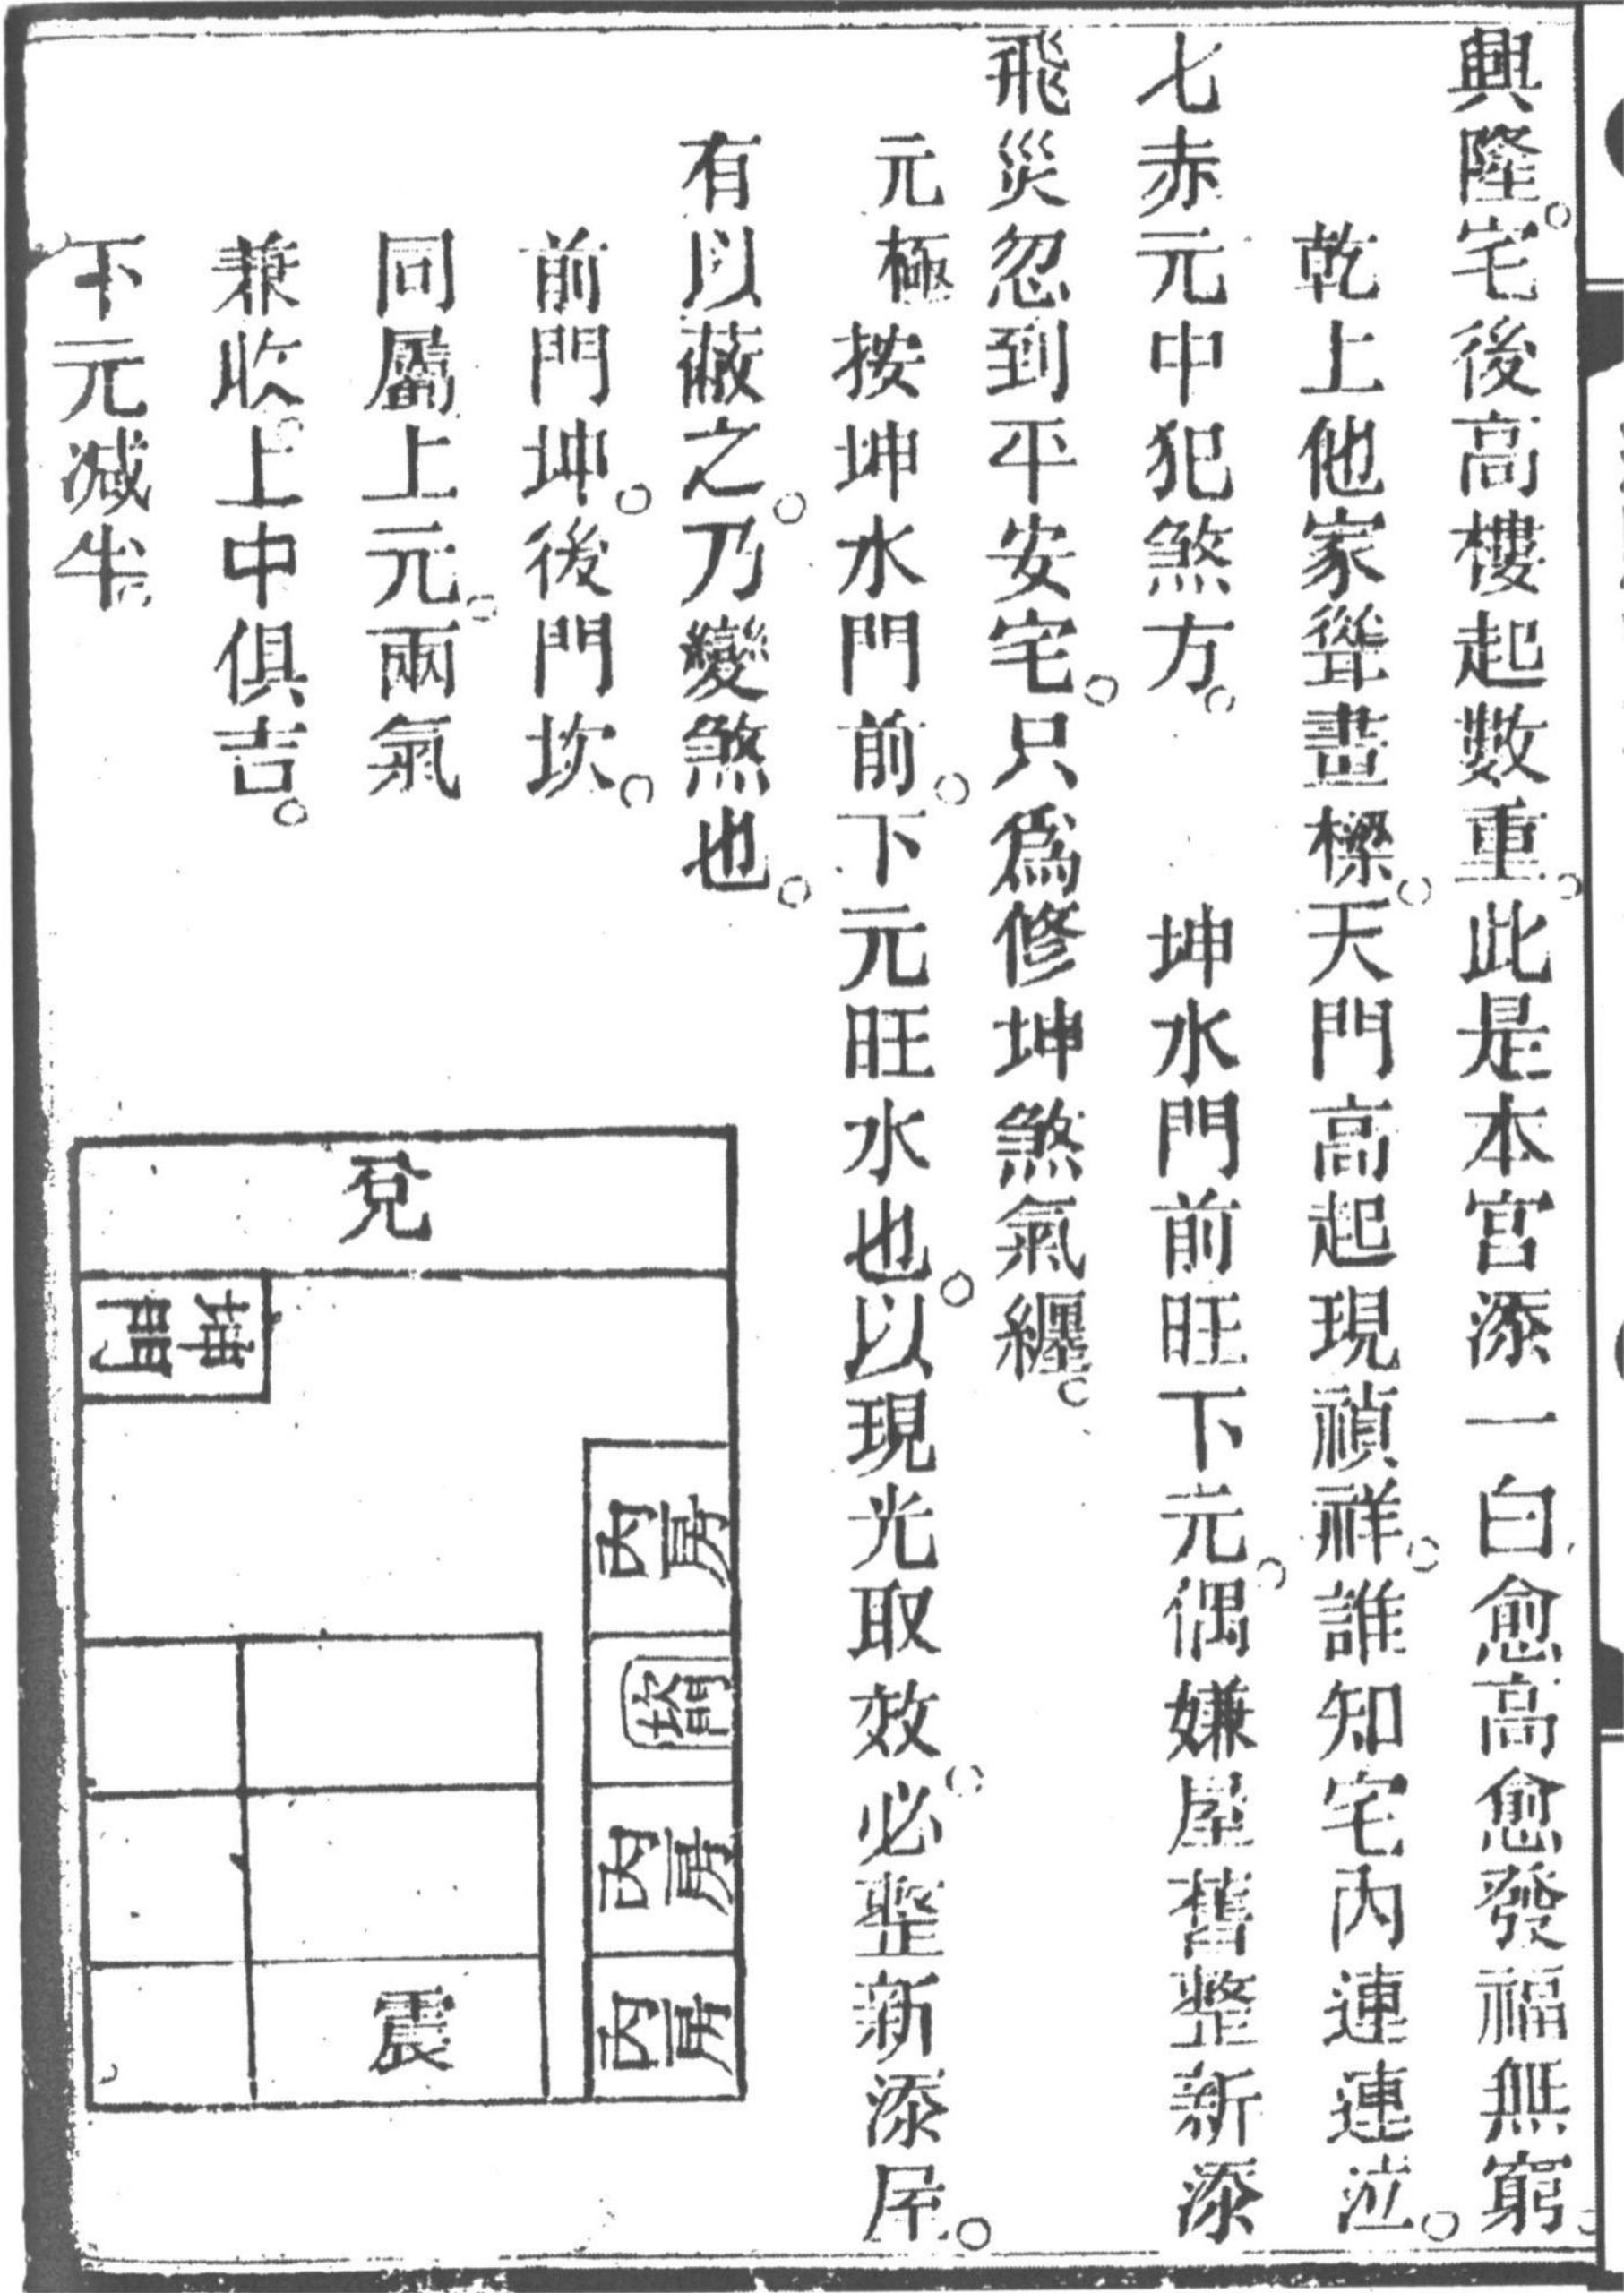 興隆。宅後高樓起數重。此是本宮添一白。愈高愈發福無窮。
乾上他家聳畫樑。天門高起現禎祥。誰知宅內連連泣。
七赤元中犯煞方。　坤水門前旺下元。偶嫌屋舊整新添
飛災忽到平安宅。只爲修坤煞氣纏。
元極按坤水門前。下元旺水也。以現光取效。必整新添屋。
有以蔽之。乃變煞也。
前門坤。後門坎。
同屬上元。兩氣
兼收。上中俱吉。
下元减半。
兌
坤門
內房
坎門
內房
內房
震